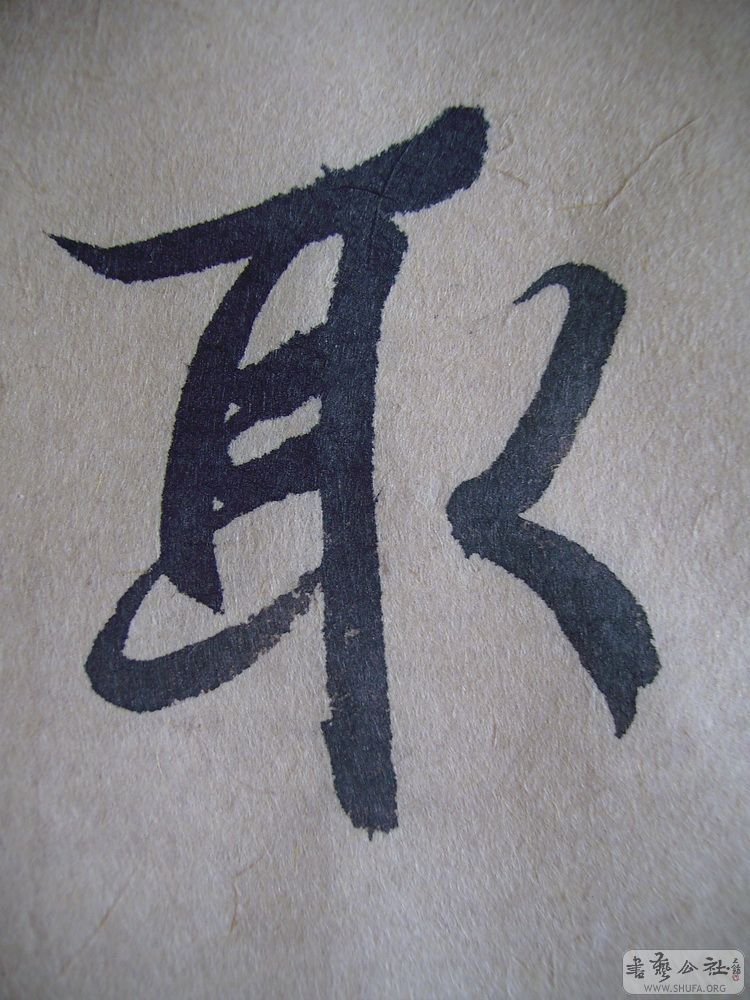 取
書藝公社
WWW.SHUFA.ORG